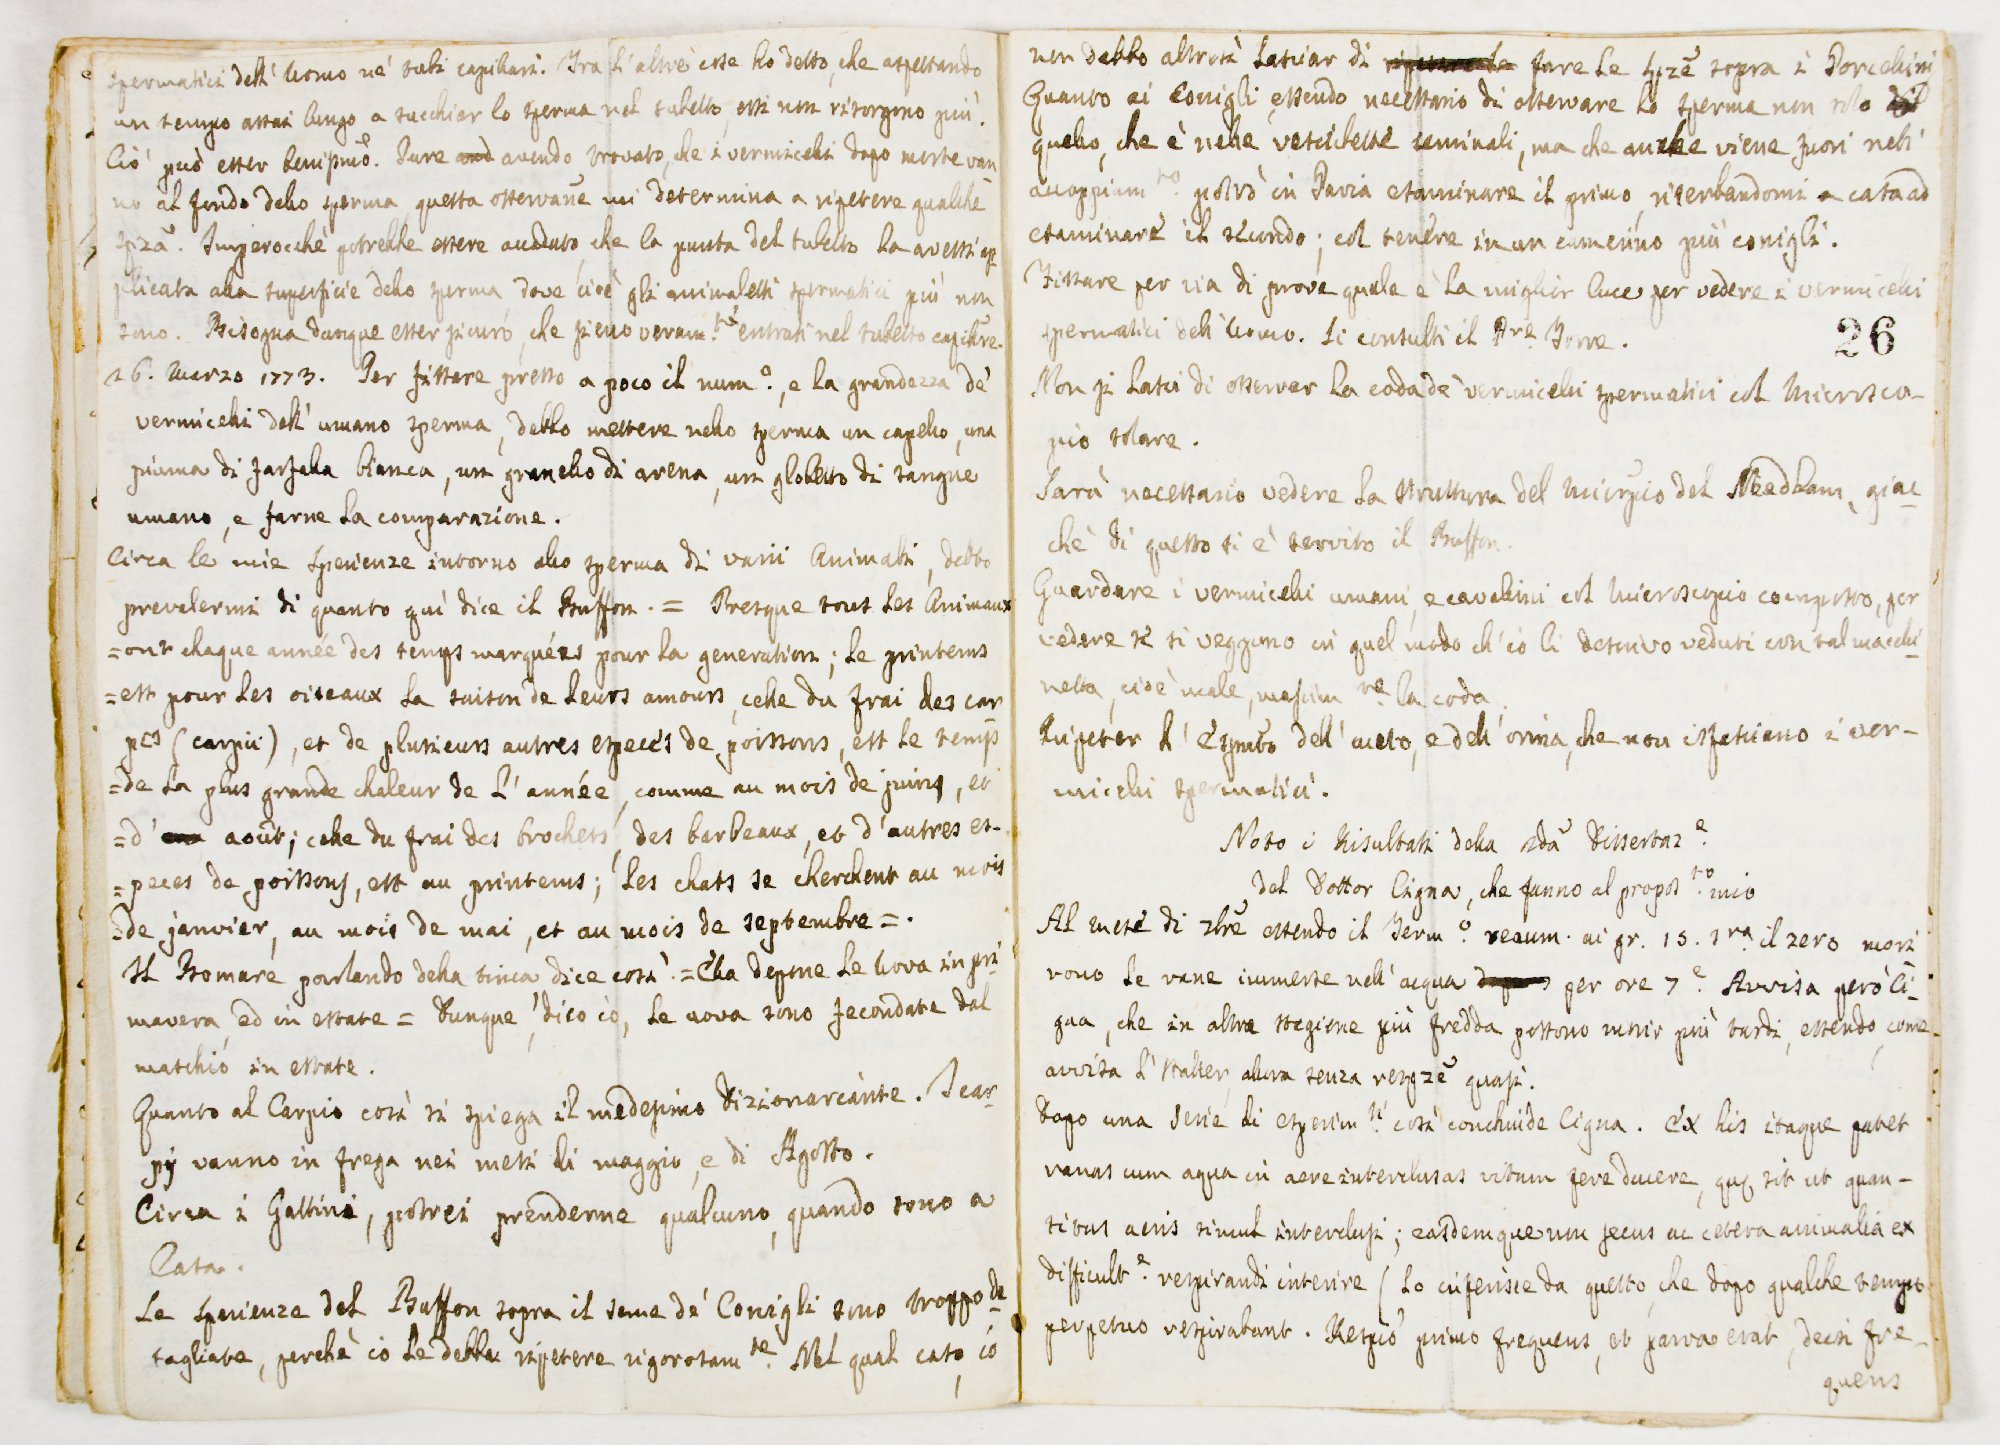 spermatici dell' Uomo ne' tubi capillari. Fra l'altre cose ho detto, che aspettando
un tempo assai lungo a succhiar lo sperma nel tubetto, essi non risorgono più.
Ciò può esser benissmõ. Pure avendo trovato, che i vermicelli dopo morte van
no al fondo dello sperma, questa osservañe mi determina a ripetere qualche
spzã. Imperocchè potrebbe essere accaduto, che la punta del tubetto la avessi ap
plicata alla superficie dello sperma dove cioè gli animaletti spermatici più non
sono. Bisogna dunque esser sicuro, che sieno veram.te entrati nel tubetto capillare.
26. Marzo 1773. Per fissare presso a poco il num.o, e la grandezza de'
vermicelli dell' umano sperma, debbo mettere nello sperma un capello, una
piuma di farfalla bianca, un granello di arena, un globetto di sangue
umano, e farne la comparazione.
Circa le mie sperienze intorno allo sperma di varii Animali, debbo
prevalermi di quanto qui dice il Buffon. = Presque tous les Animaux
=ont chaque année des temps marquées pour la generation; le printems
=est pour les oiseaux la saison de leurs amours, celle du frai des car
pes (carpii), et de plusieurs autres especes de poissons, est le temps
=de la plus grande chaleur de l'année, comme au mois de juin, et
=d' août; celle du frai des brochets, des barbeaux, et d'autres es-
=peces de poissons, est au printems; les chats se cherchent au mois
=de janvier, au mois de mai, et au mois de septembre =.
Il Bomare parlando della tinca dice così. = Ella depone le Uova in pri
mavera, ed in estate = Dunque, dico io, le uova sono fecondate dal
maschio in estate.
Quanto al Carpio così si spiega il medesimo Dizionarcante. I car
pj vanno in frega nei mesi di maggio, e di Agosto.
Circa i Gattini, potrei prenderne qualcuno, quando sono a
Casa.
Le sperienze del Buffon sopra il seme de' Conigli sono troppo de
tagliate, perchè io le debba ripetere rigorosam.te Nel qual caso, io
non debbo altresì lasciar di fare le spzẽ sopra i Porcellini
Quanto ai Conigli, essendo necessario di osservare lo sperma non solo
quello, che è nelle vescichette seminali, ma che anche viene fuori nell'
accoppiam.to potrò in Pavia esaminare il primo, riserbandomi a casa ad
esaminare il secondo; col tenere in un camerino più conigli.
Fissare per via di prove quale è la miglior luce per vedere i vermicelli
spermatici dell'Uomo. Si consulti il P.re Torre.
26
Non si lasci di osservar la coda de' vermicelli spermatici col Microsco-
pio solare.
Sarà necessario vedere la struttura del Micrspio del Needham, giac
chè di questo si è servito il Buffon.
Guardare i vermicelli umani, e cavallini col Microscopio composto, per
vedere se si veggono in quel modo ch'io li descrivo veduti con tal macchi
netta, cioè male, massim.te la coda.
Ripeter l'Espmẽto dell'aceto, e dell'orina, che non isfasciano i ver-
micelli spermatici.
Noto i Risultati della 2dã Dissertaz.e
del Dottor Cigna, che fanno al propos.to mio
Al mese di 7brẽ essendo il Term.o reaum. ai gr. 15. s.ra il zero mori
rono le rane immerse nell'acqua per ore 7.e Avvisa però Ci
gna, che in altra stagione più fredda possono morir più tardi, essendo, come
avvisa l'Haller, allora senza respzẽ quasi.
Dopo una serie di esperim.ti così conchiude Cigna. Ex his itaque patet
ranas cum aqua in aere interclusas vitam fere ducere, quę sit ut quan-
titas aeris simul interclusi; easdemque non secus ac cetera animalia ex
difficult.e respirandi interire (lo inferisce da questo, che dopo qualche tempo
perpetuo respirabant. Respiõ primo frequens, et parva erat, dein fre-
quens